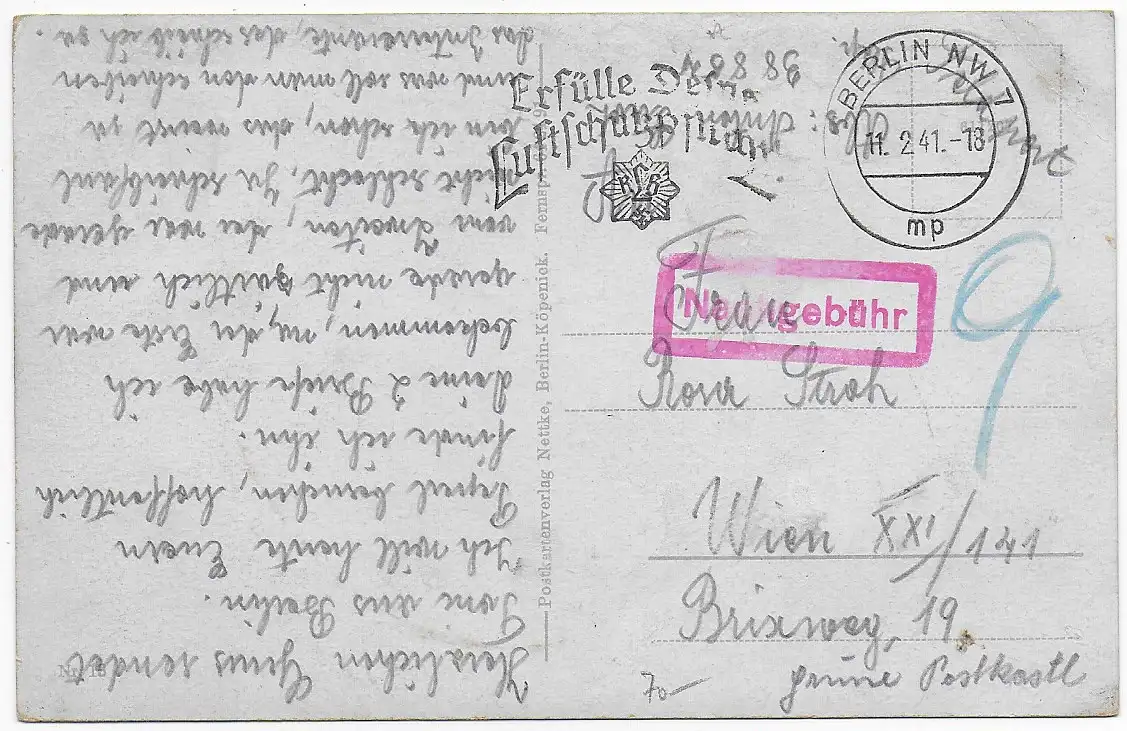 BERLIN NW 7
11. 2.41.-18
mp
Erfülle Deine
Luftschutzpflicht!
RLB
Nachgebühr
9
Frau
Rosa Stroh
Wien XXI/141
Brixweg 19
grüne Postkastl
70
Postkartenverlag Nettke, Berlin-Köpenick. Fernspr.
Abs.: Anton
Herzlichen Gruss sendet
Toni aus Berlin.
Ich will heute Euern
besuchen, hoffentlich
finde ich ihn.
Deine 2 Briefe habe ich
bekommen, na, der Erste war
gerade nicht zärtlich und
vom Zweiten, da war gerade
nicht schlecht, Zu schreibfaul
bin ich schon, das weisst ja
und was soll man den schreiben
das Interesante, das schreib ich ja.